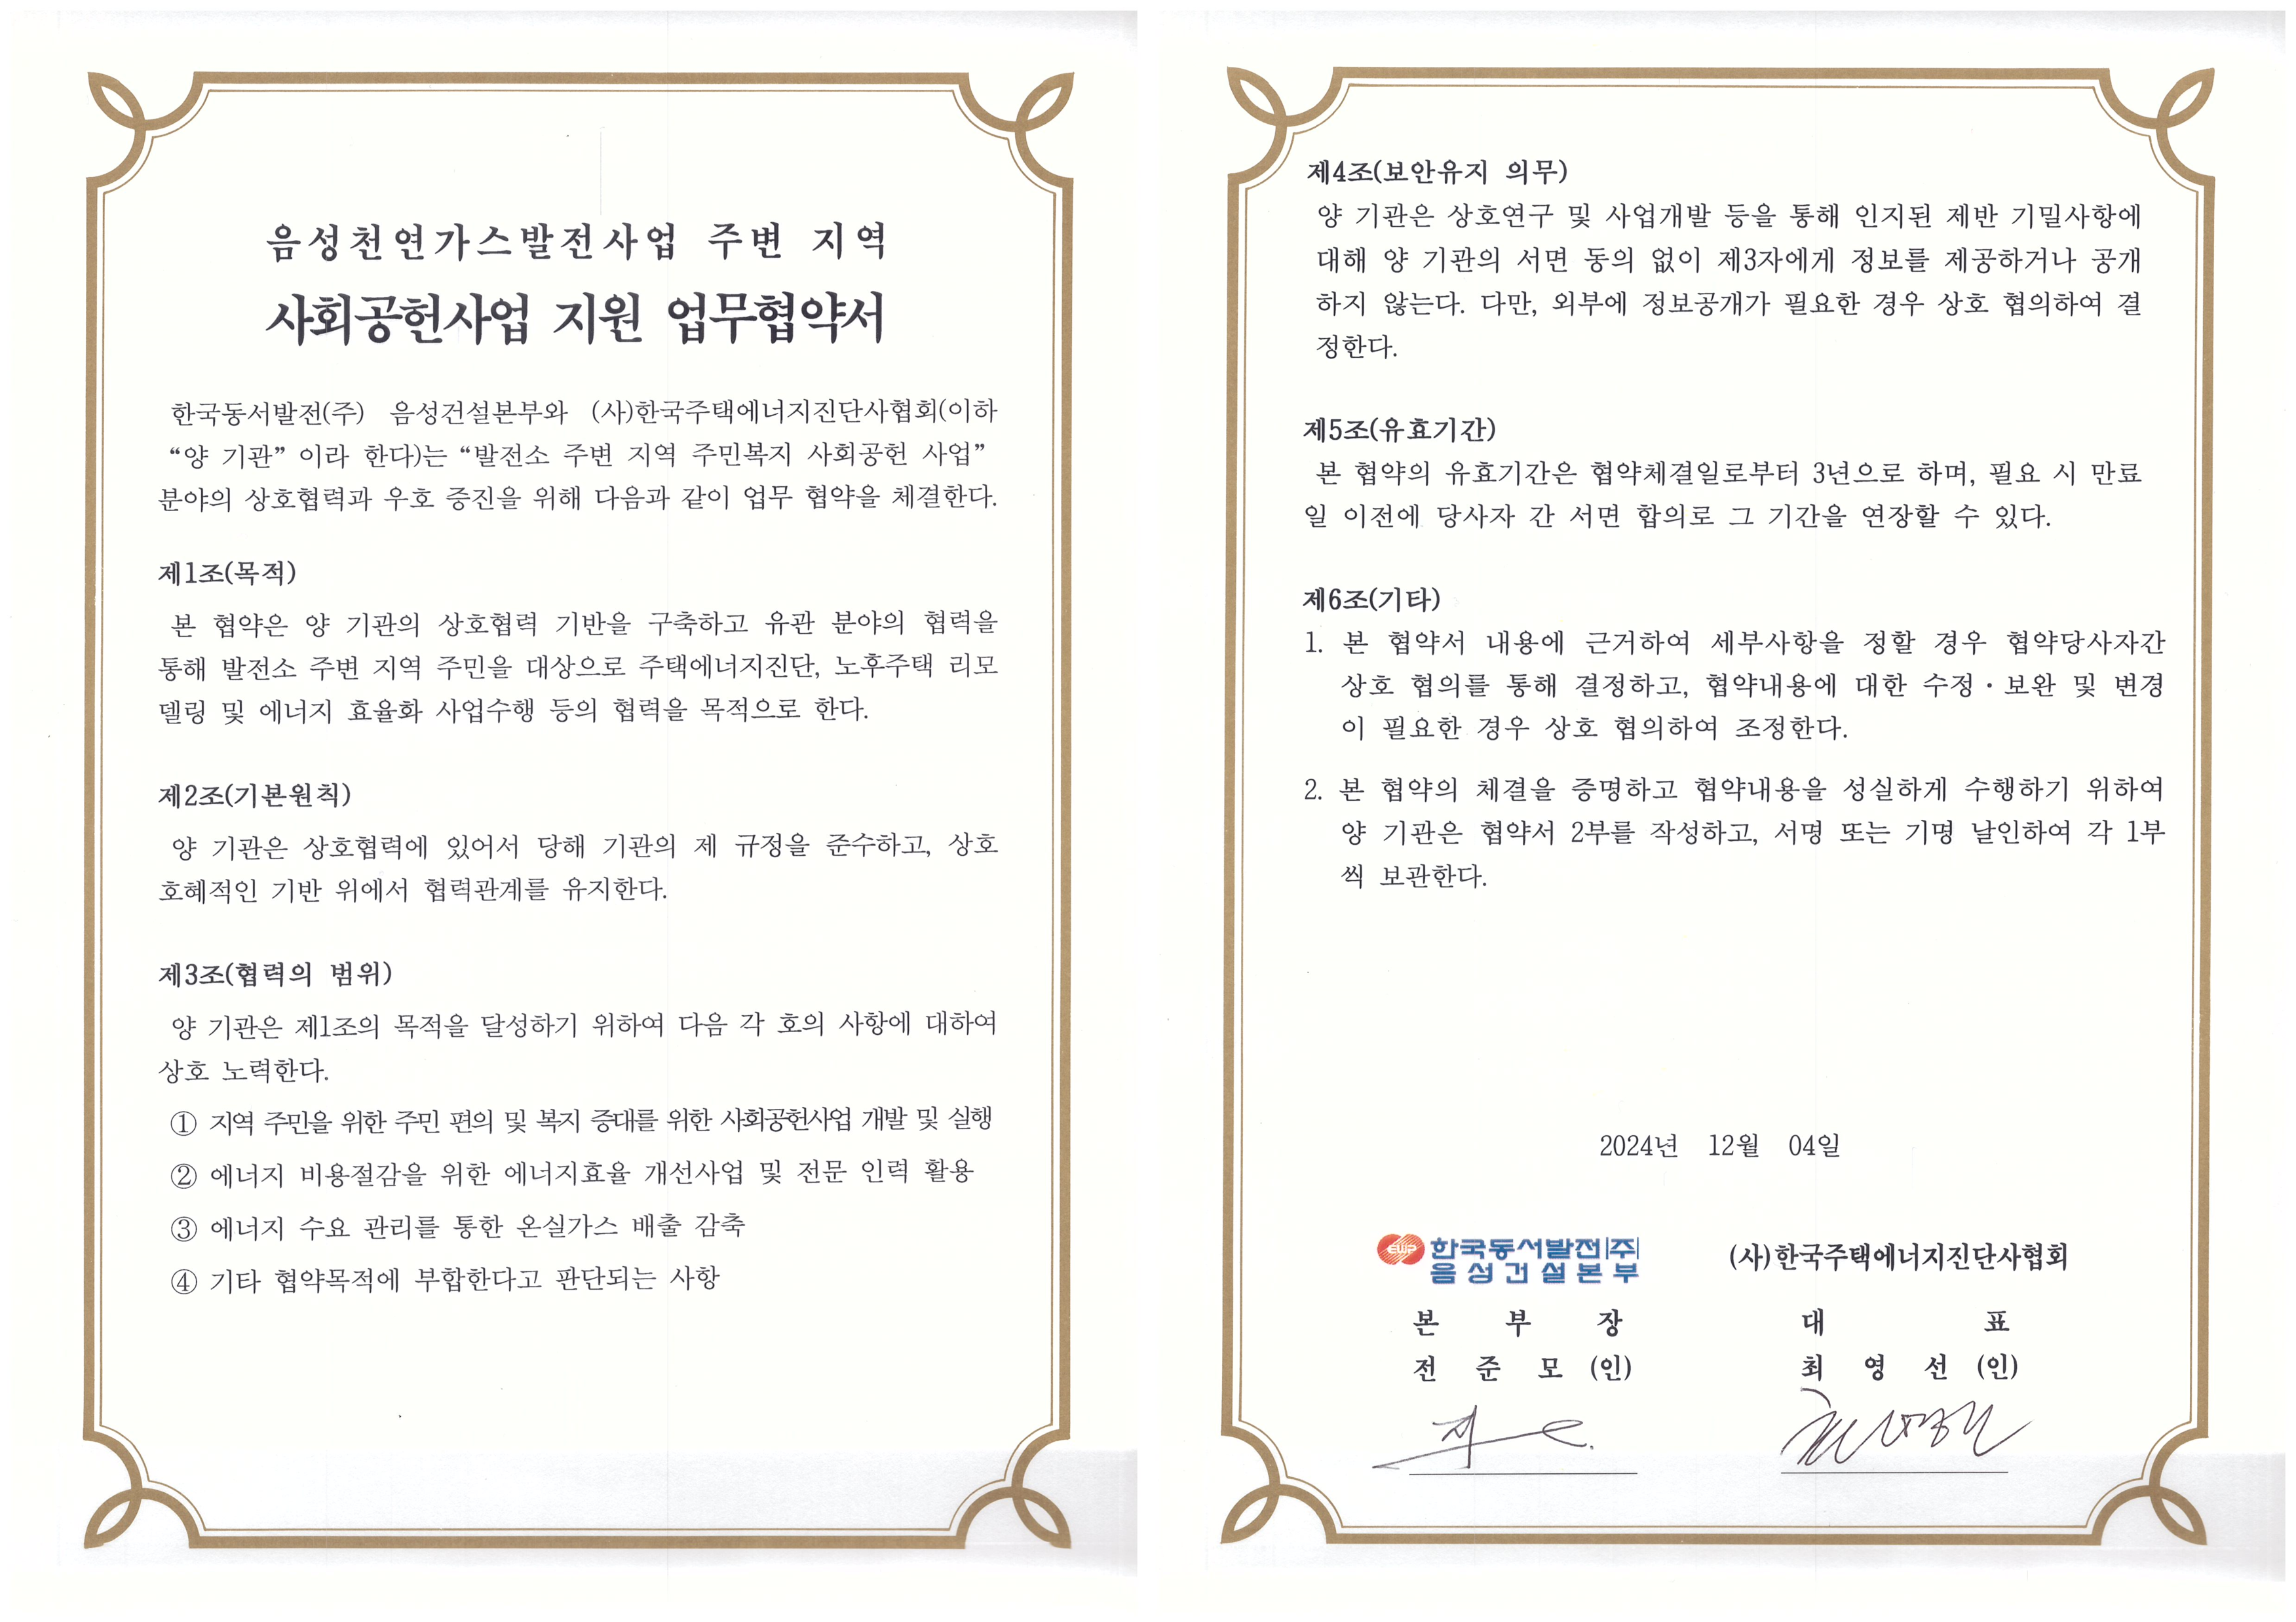 음성천연가스발전사업 주변 지역
사회공헌사업 지원 업무협약서
한국동서발전(주) 음성건설본부와 (사)한국주택에너지진단사협회(이하
“양 기관” 이라 한다)는 “발전소 주변 지역 주민복지 사회공헌 사업”
분야의 상호협력과 우호 증진을 위해 다음과 같이 업무 협약을 체결한다.
제1조(목적)
본 협약은 양 기관의 상호협력 기반을 구축하고 유관 분야의 협력을
통해 발전소 주변 지역 주민을 대상으로 주택에너지진단, 노후주택 리모
델링 및 에너지 효율화 사업수행 등의 협력을 목적으로 한다.
제2조(기본원칙)
양 기관은 상호협력에 있어서 당해 기관의 제 규정을 준수하고, 상호
호혜적인 기반 위에서 협력관계를 유지한다.
제3조(협력의 범위)
양 기관은 제1조의 목적을 달성하기 위하여 다음 각 호의 사항에 대하여
상호 노력한다.
① 지역 주민을 위한 주민 편의 및 복지 증대를 위한 사회공헌사업 개발 및 실행
② 에너지 비용절감을 위한 에너지효율 개선사업 및 전문 인력 활용
③ 에너지 수요 관리를 통한 온실가스 배출 감축
④ 기타 협약목적에 부합한다고 판단되는 사항
제4조(보안유지 의무)
양 기관은 상호연구 및 사업개발 등을 통해 인지된 제반 기밀사항에
대해 양 기관의 서면 동의 없이 제3자에게 정보를 제공하거나 공개
하지 않는다. 다만, 외부에 정보공개가 필요한 경우 상호 협의하여 결
정한다.
제5조(유효기간)
본 협약의 유효기간은 협약체결일로부터 3년으로 하며, 필요 시 만료
일 이전에 당사자 간 서면 합의로 그 기간을 연장할 수 있다.
제6조(기타)
1. 본 협약서 내용에 근거하여 세부사항을 정할 경우 협약당사자간
상호 협의를 통해 결정하고, 협약내용에 대한 수정·보완 및 변경
이 필요한 경우 상호 협의하여 조정한다.
2. 본 협약의 체결을 증명하고 협약내용을 성실하게 수행하기 위하여
양 기관은 협약서 2부를 작성하고, 서명 또는 기명 날인하여 각 1부
씩 보관한다.
2024년 12월 04일
EWP 한국동서발전(주)
음성건설본부
본 부 장
전 준 모 (인)
(사)한국주택에너지진단사협회
대 표
최 영 선 (인)
최영선